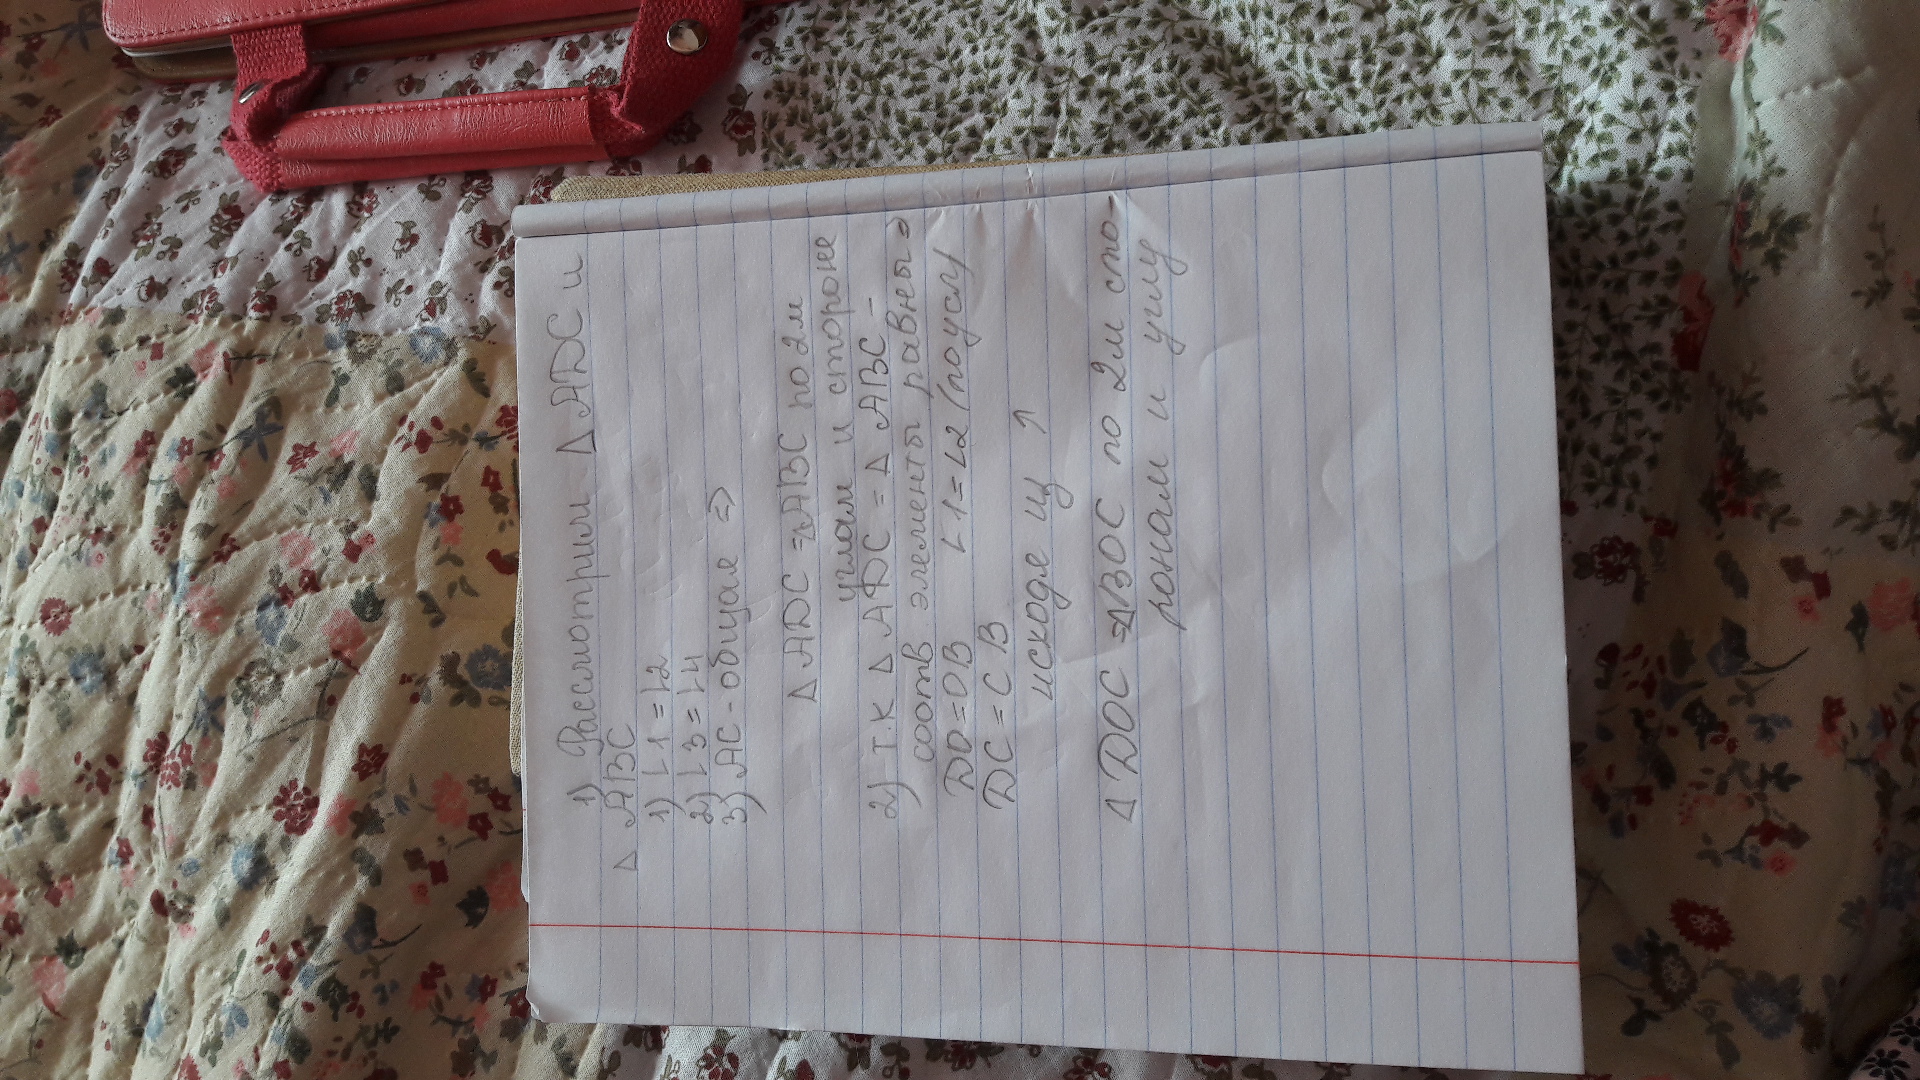 1) Рассмотрим Δ ADC и
Δ ABC
1) ∠1 = ∠2
2) ∠3 = ∠4
3) AC - общая ⇒
Δ ADC = Δ ABC по 2м
углам и стороне
2) т.к Δ ADC = Δ ABC -
соотв элементы равны ⇒
DO = OB ∠1 = ∠2 (по усл)
DC = CB
исходя из ↑
Δ DOC = Δ BOC по 2м сто-
ронам и углу